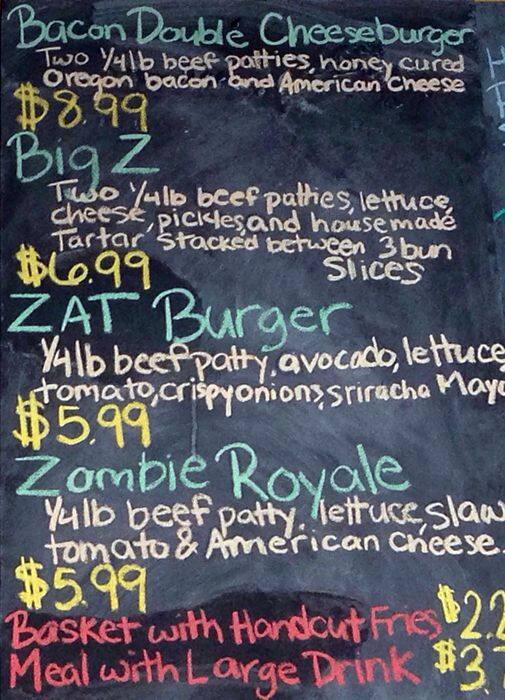 Bacon Double Cheeseburger
Two 1/4lb beef patties, honey cured
Oregon bacon and American Cheese
$8.99
Big Z
Two 1/4lb beef patties, lettuce,
cheese, pickles, and house made
Tartar Stacked between 3 bun
Slices
$6.99
ZAT Burger
1/4lb beef patty, avocado, lettuce
tomato, crispy onions, sriracha Mayo
$5.99
Zombie Royale
1/4lb beef patty, lettuce, slaw
tomato & American Cheese.
$5.99
Basket with Handcut Fries $2.2
Meal with Large Drink $3